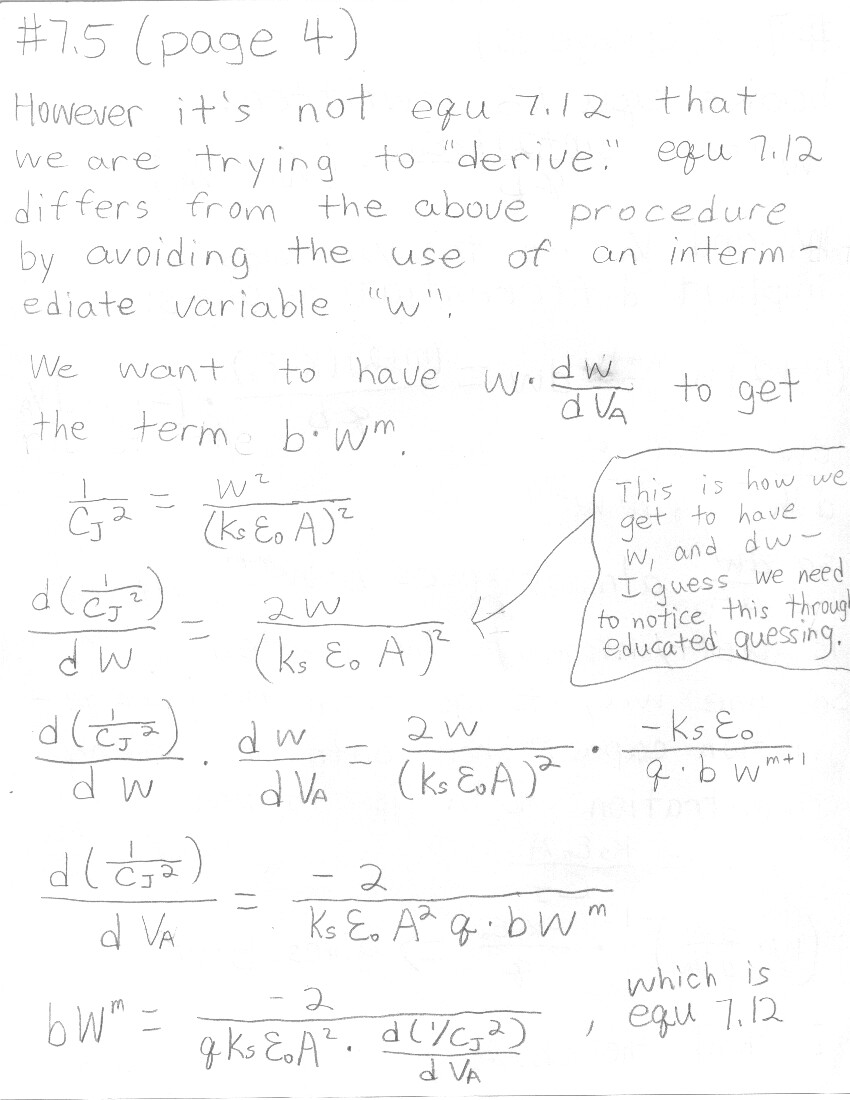 #7.5 (page 4)
However it's not equ 7.12 that
we are trying to "derive." equ 7.12
differs from the above procedure
by avoiding the use of an interm-
ediate variable "w".
We want to have W · dW/dV_A to get
the term b·W^m.
1/C_J^2 = W^2/(K_s ε_0 A)^2
This is how we
get to have
W, and dw-
I guess we need
to notice this through
educated guessing.
d(1/C_J^2)/dW = 2W/(K_s ε_0 A)^2
d(1/C_J^2)/dW · dW/dV_A = 2W/(K_s ε_0 A)^2 · -K_s ε_0/(q·b W^(m+1))
d(1/C_J^2)/dV_A = -2/(K_s ε_0 A^2 q·bW^m)
bW^m = -2/(q K_s ε_0 A^2 · d(1/C_J^2)/dV_A), which is
equ 7.12